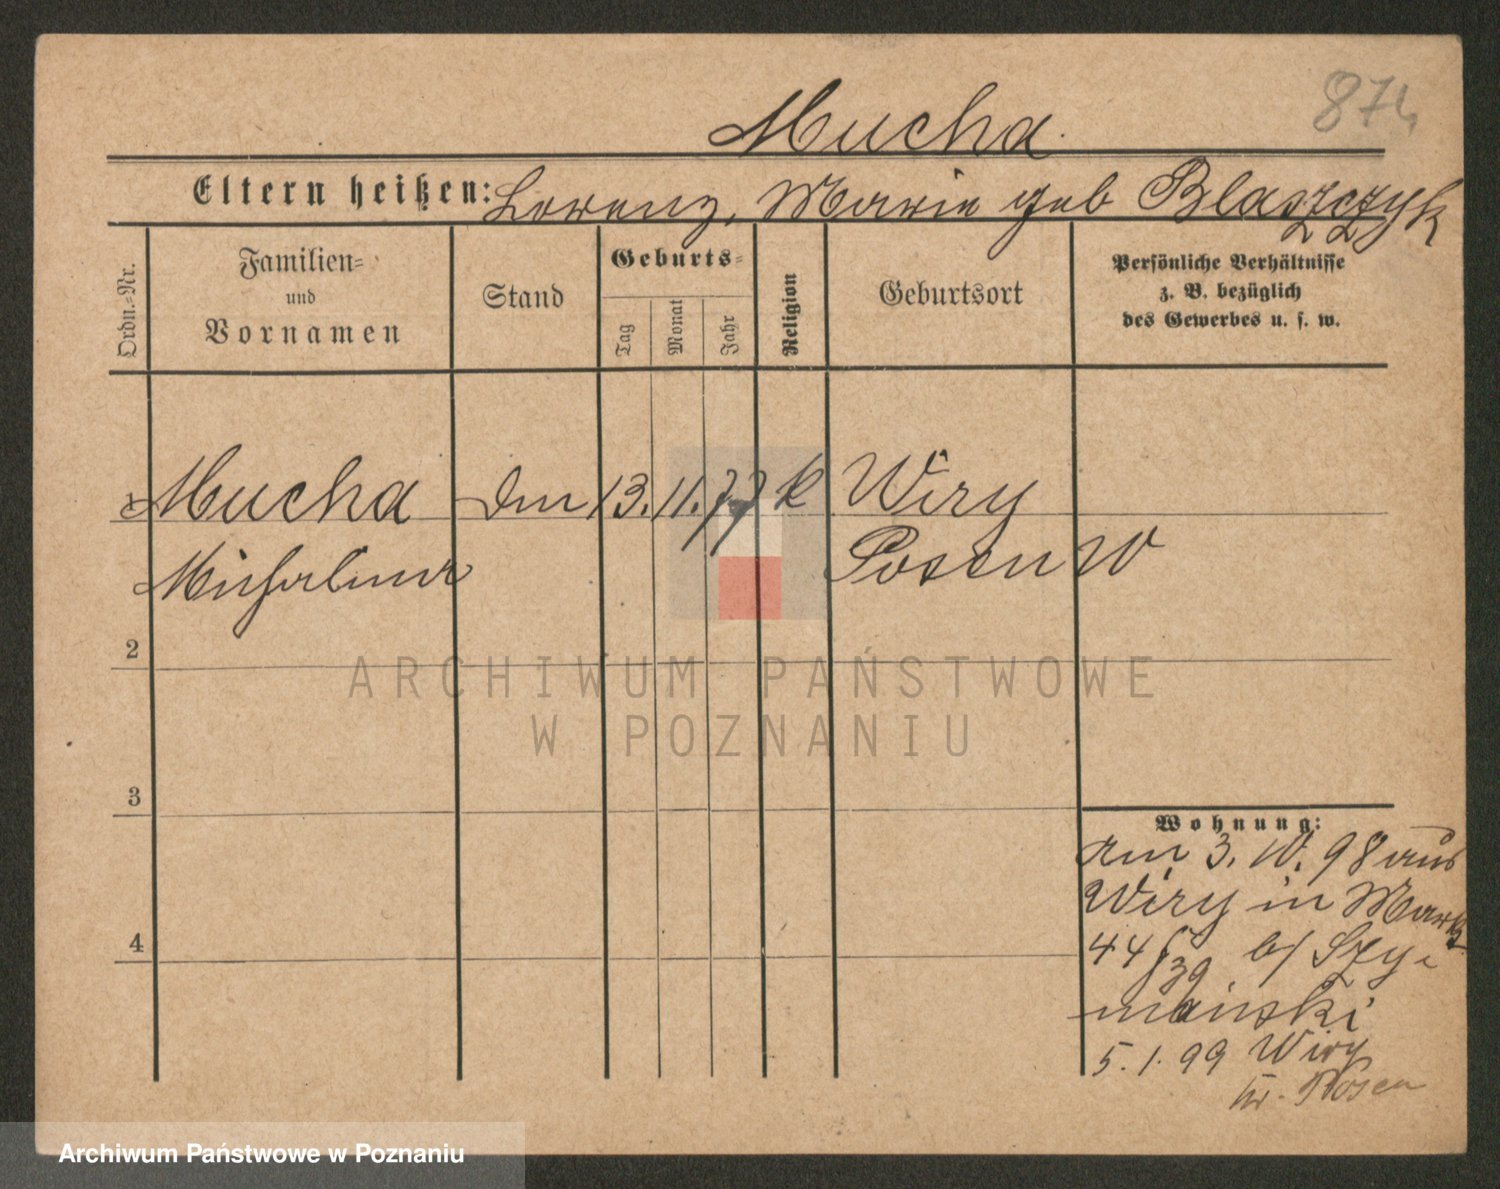 874
Mucha
Eltern heißen: Lorenz, Marie geb Blaszczyk
Ordn.=Nr.
Familien=
und
Vornamen
Stand
Geburts=
Tag
Monat
Jahr
Religion
Geburtsort
Persönliche Verhältnisse
z. B. bezüglich
des Gewerbes u. s. w.
1 Mucha 13. 11. 77 k Wiry
Michalina Posen W
2
ARCHIWUM PAŃSTWOWE
W POZNANIU
3
4
Wohnung:
am 3. 10. 98 aus
Wiry in Markt
44 b/ Szy-
mański
5. 1. 99 Wiry
Kr. Posen
Archiwum Państwowe w Poznaniu